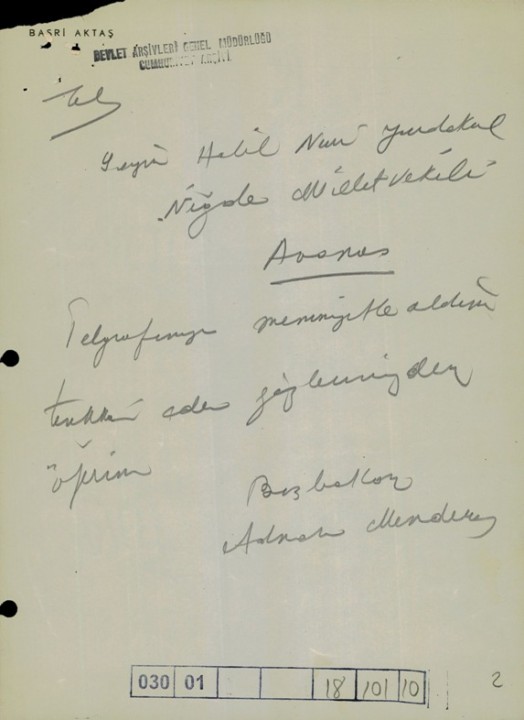 BASRİ AKTAŞ
DEVLET ARŞİVLERİ GENEL MÜDÜRLÜĞÜ
CUMHURİYET ARŞİVİ
Tel
Sayın Halil Nuri Yurdakul
Niğde Milletvekili
Avanos
Telgrafınızı memnuniyetle aldım
teşekkür eder gözlerinizden
öperim
Başbakan
Adnan Menderes
030 01 18 101 10
2